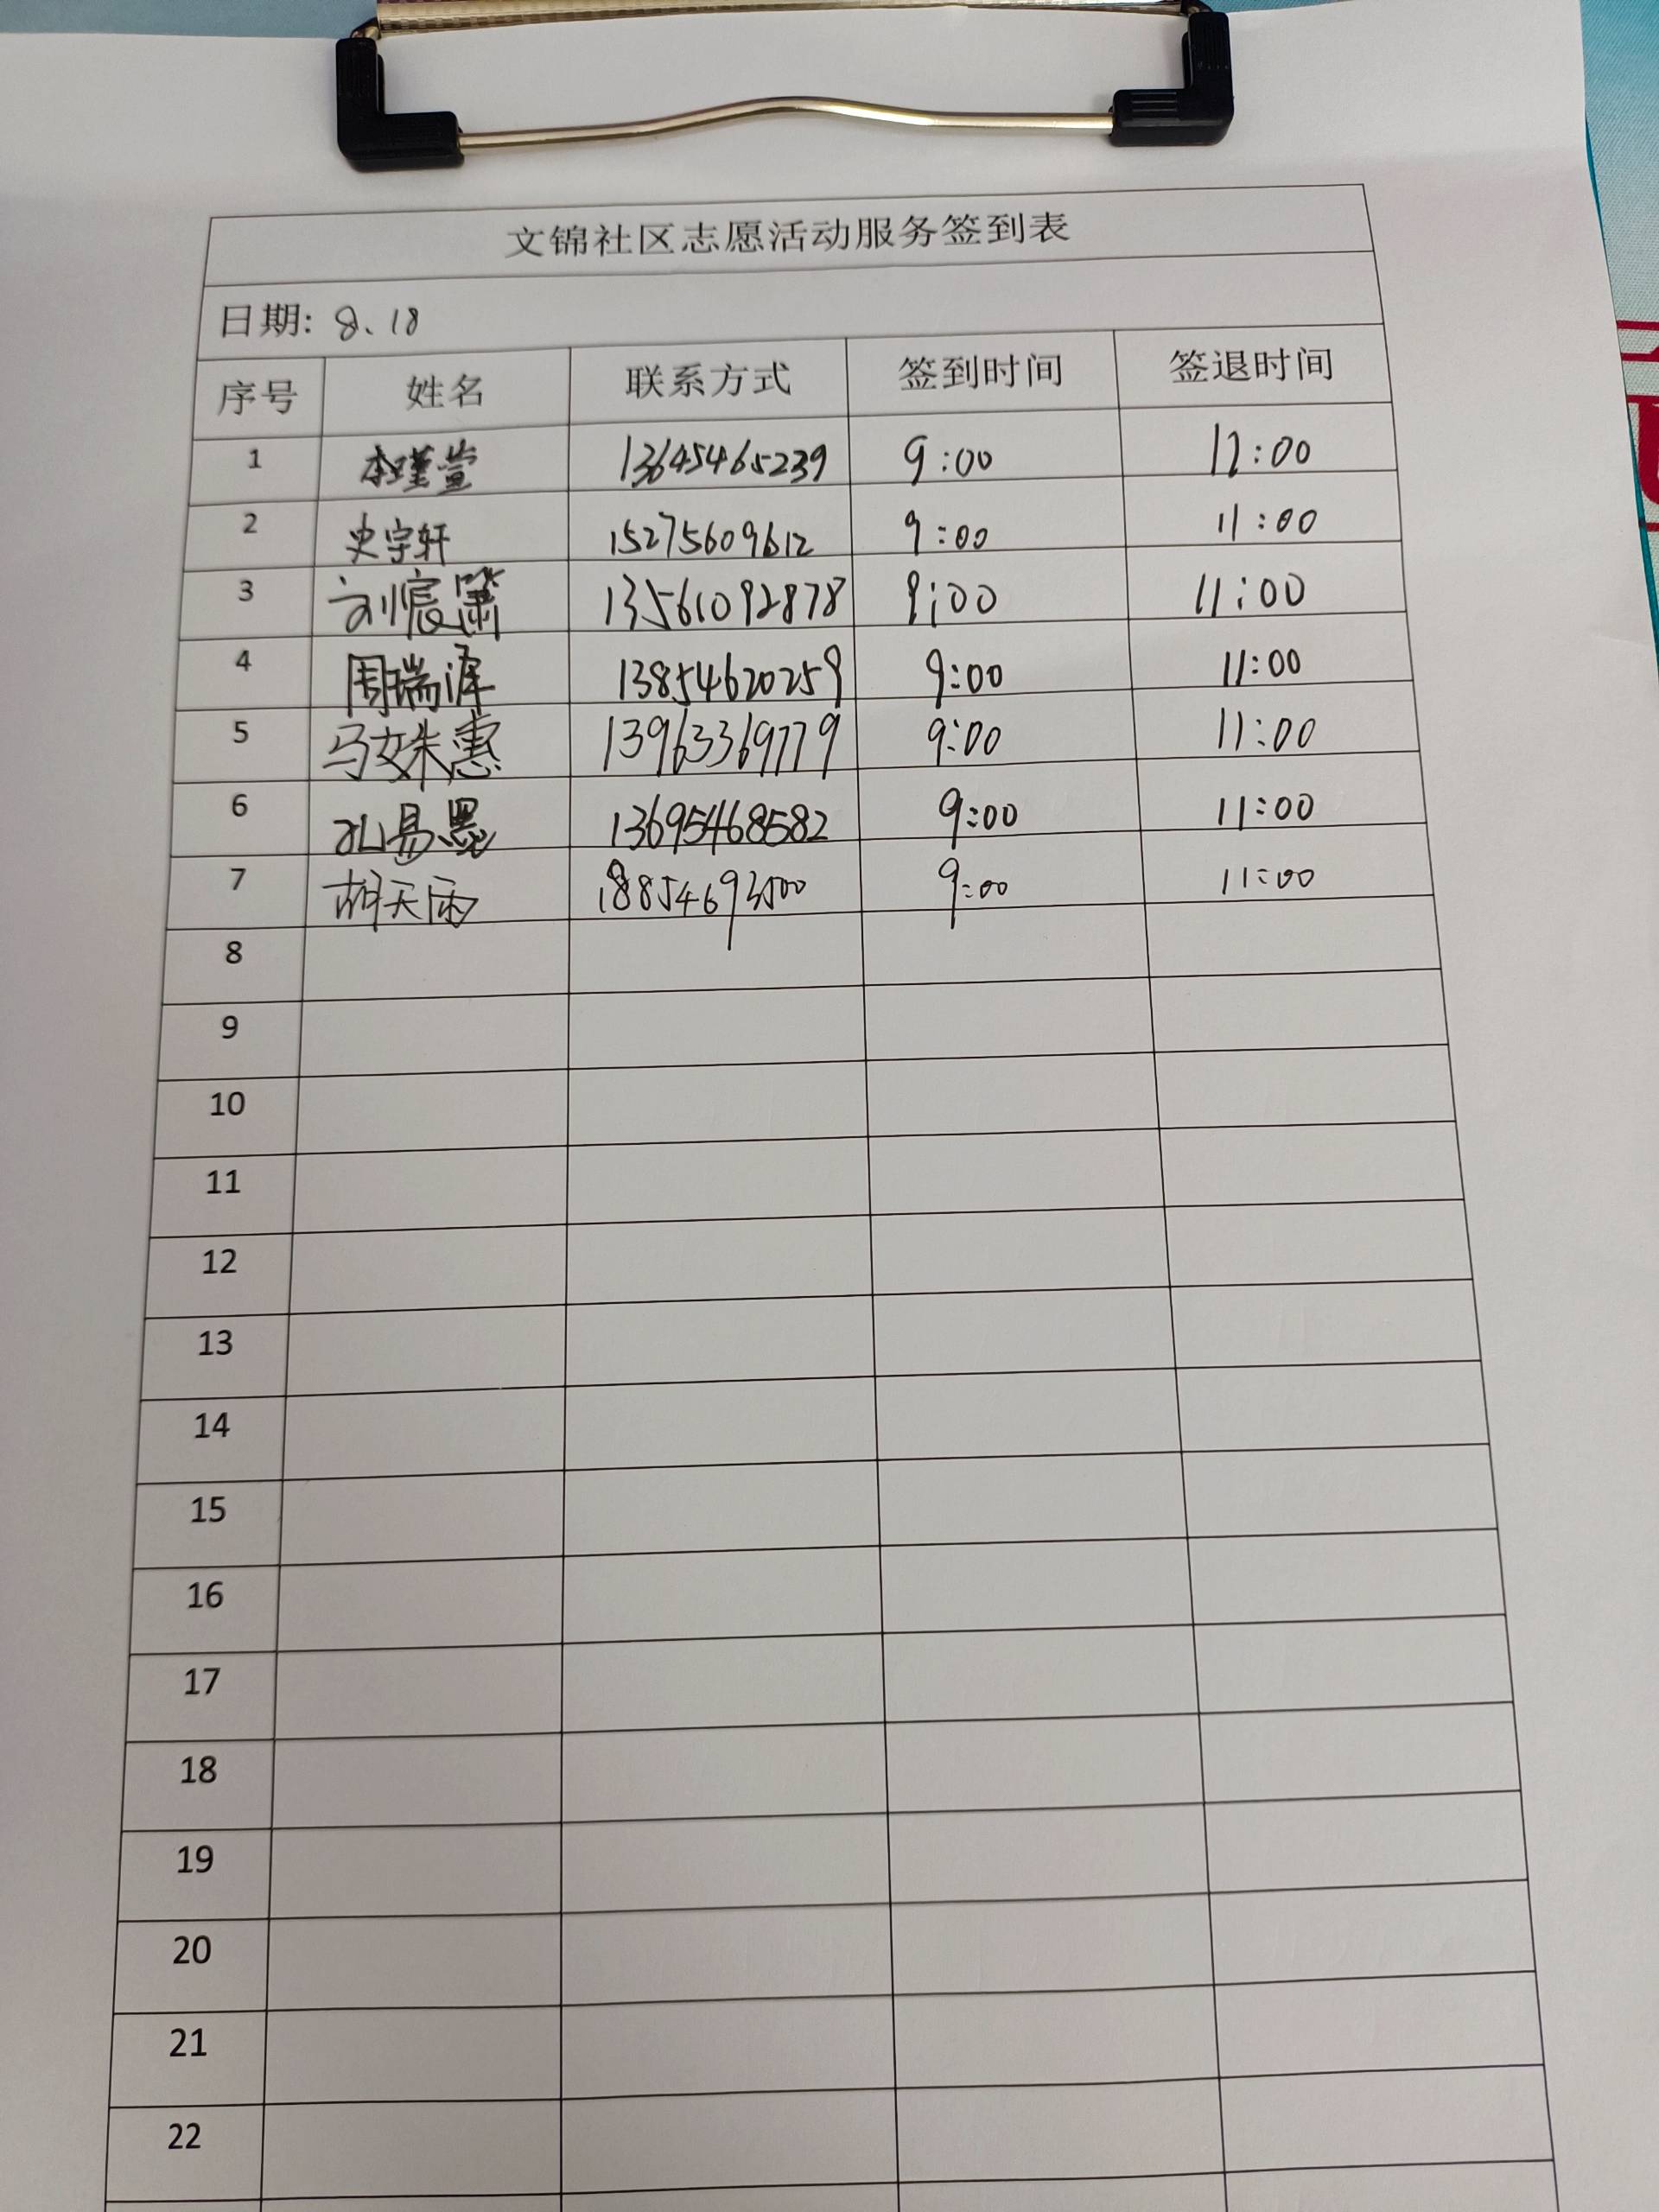 文锦社区志愿活动服务签到表
日期: 8.18
序号 姓名 联系方式 签到时间 签退时间
1 李瑾萱 13645465239 9:00 12:00
2 史宇轩 15275609612 9:00 11:00
3 刘宸箫 13561092878 9:00 11:00
4 周瑞泽 13854620259 9:00 11:00
5 马姝惠 13963369779 9:00 11:00
6 孔易墨 13695468582 9:00 11:00
7 胡天雨 18854693500 9:00 11:00
8
9
10
11
12
13
14
15
16
17
18
19
20
21
22